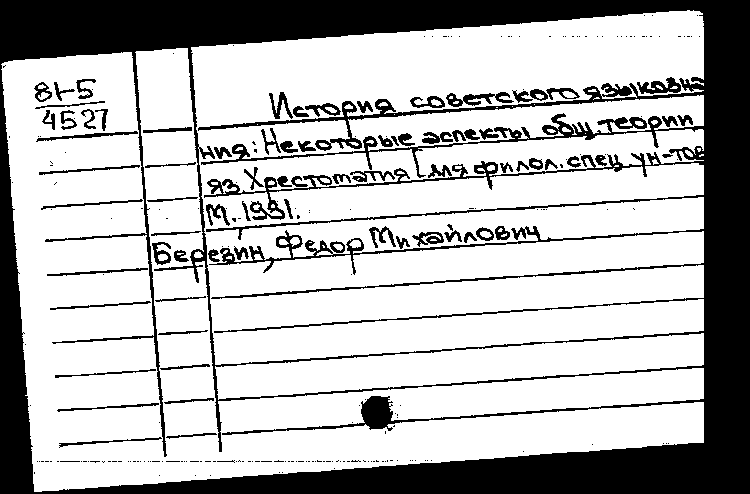 81-5
4527
История советского языкозна
ния: Некоторые аспекты общ. теории
яз. Хрестоматия [для филол. спец. ун-тов
М. 1981.
Березин, Федор Михайлович.